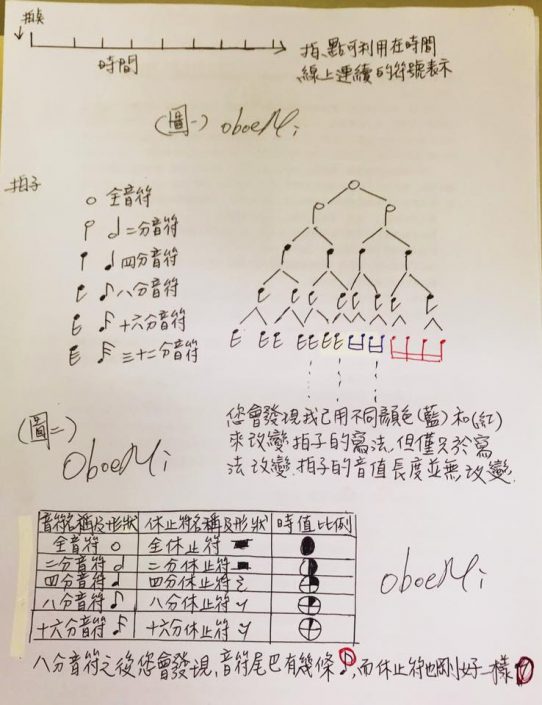 拍點
時間
拍點可利用在時間
線上連續的符號表示
(圖一) oboeMi
拍子
全音符
二分音符
四分音符
八分音符
十六分音符
三十二分音符
您會發現我已用不同顏色(藍)和(紅)
來改變拍子的寫法,但僅只於寫
法改變.拍子的音值長度並無改變.
(圖二)
OboeMi
音符名稱及形狀 休止符名稱及形狀 時值比例
全音符 全休止符
二分音符 二分休止符
四分音符 四分休止符
八分音符 八分休止符
十六分音符 十六分休止符
oboeMi
八分音符之後您會發現,音符尾巴有幾條,而休止符也剛好一樣